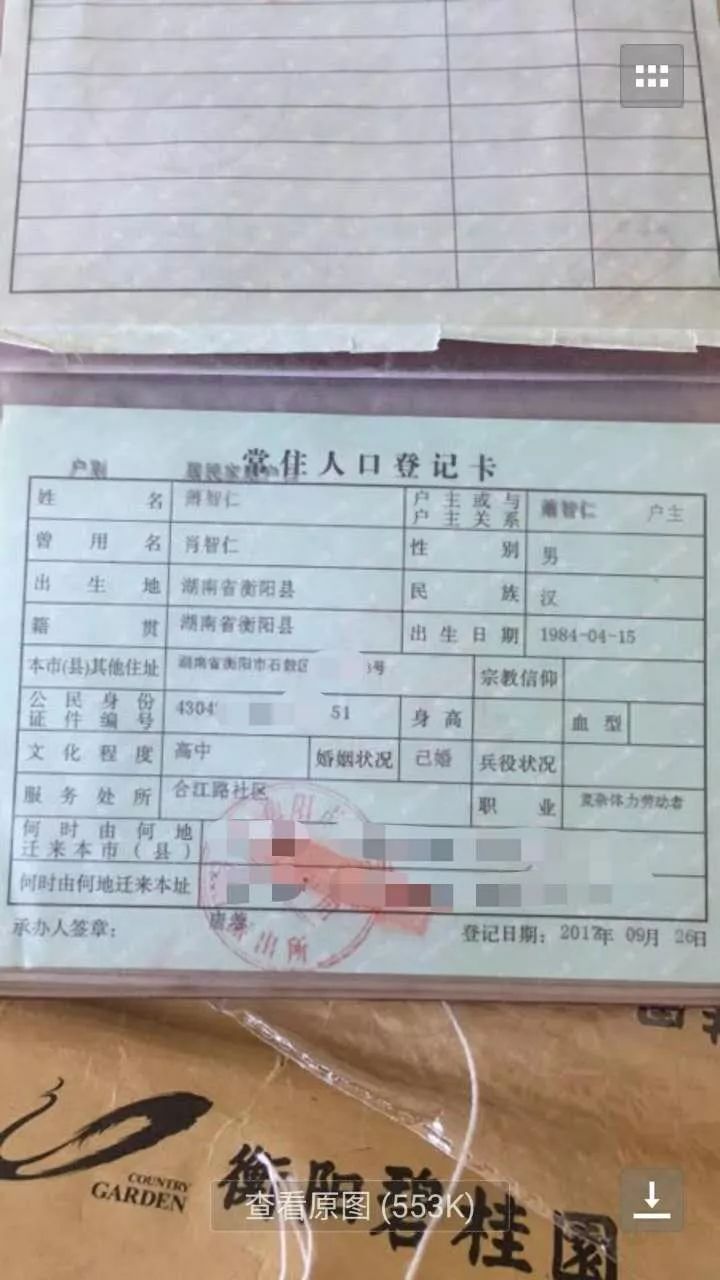 户别 居民家庭户口
常住人口登记卡
姓名 萧智仁 户主或与户主关系 萧智仁 户主
曾用名 肖智仁 性别 男
出生地 湖南省衡阳县 民族 汉
籍贯 湖南省衡阳县 出生日期 1984-04-15
本市(县)其他住址 湖南省衡阳市石鼓区 号 宗教信仰
公民身份证件编号 4304 51 身高 血型
文化程度 高中 婚姻状况 已婚 兵役状况
服务处所 合江路社区 职业 复杂体力劳动者
何时由何地迁来本市(县)
何时由何地迁来本址
承办人签章: 登记日期: 2017年 09月 26日
出所
COUNTRY
GARDEN
衡阳碧桂園
查看原图 (553K)